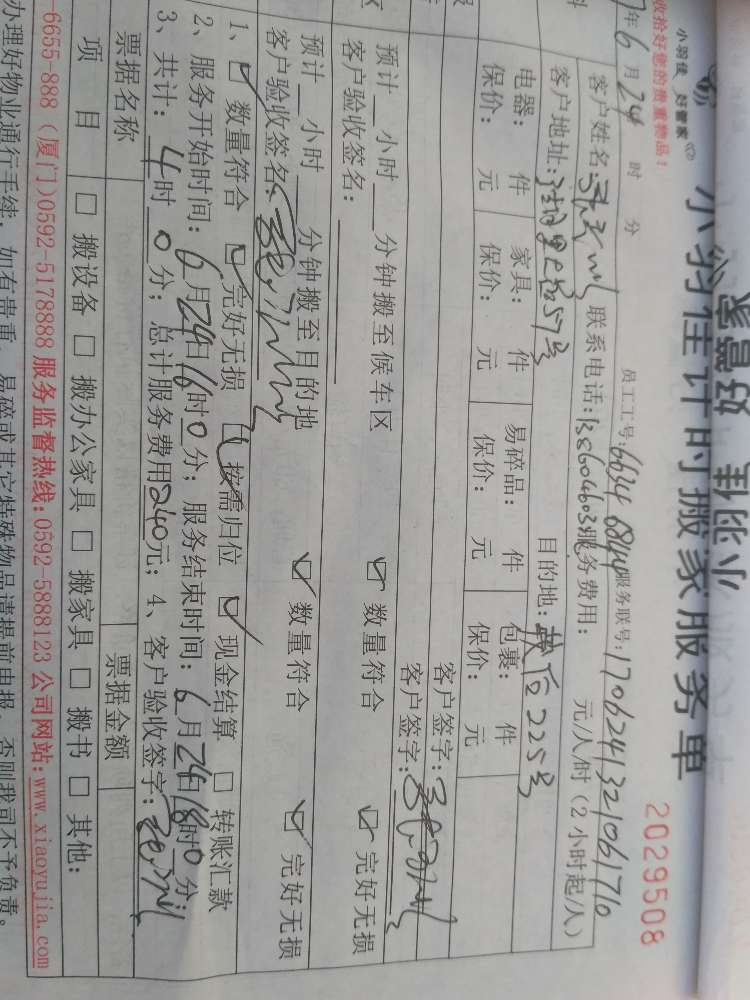 小羽佳 好管家
小羽佳计时搬家服务单
2029508
收拾好您的贵重物品!
年6月24 时 分
员工工号:6634 6844 服务联号:1706241321061710
客户姓名: 联系电话: 服务费用: 元/人/时(2小时起/人)
客户地址: 57号 目的地: 后225号
电器: 件 家具: 件 易碎品: 件 包裹: 件
保价: 元 保价: 元 保价: 元 保价: 元
客户签字:
客户签字:
预计 小时 分钟搬至候车区 ☑ 数量符合 ☑ 完好无损
客户验收签名:
预计 小时 分钟搬至目的地 ☑ 数量符合 ☑ 完好无损
客户验收签名:
1、☑ 数量符合 ☑ 完好无损 ☑ 按需归位 ☑ 现金结算 □ 转账汇款
2、服务开始时间: 6月24日16时0分; 服务结束时间: 6月24日18时0分;
3、共计: 4时 0分; 总计服务费用240元; 4、客户验收签字:
票据名称 票据金额
项 目 □ 搬设备 □ 搬办公家具 □ 搬家具 □ 搬书 □ 其他:
-6655-888 (厦门)0592-5178888 服务监督热线:0592-5888123 公司网站:www.xiaoyujia.com
办理好物业通行手续, 如有贵重、易碎或其它特殊物品请提前申报, 否则我司不予负责。